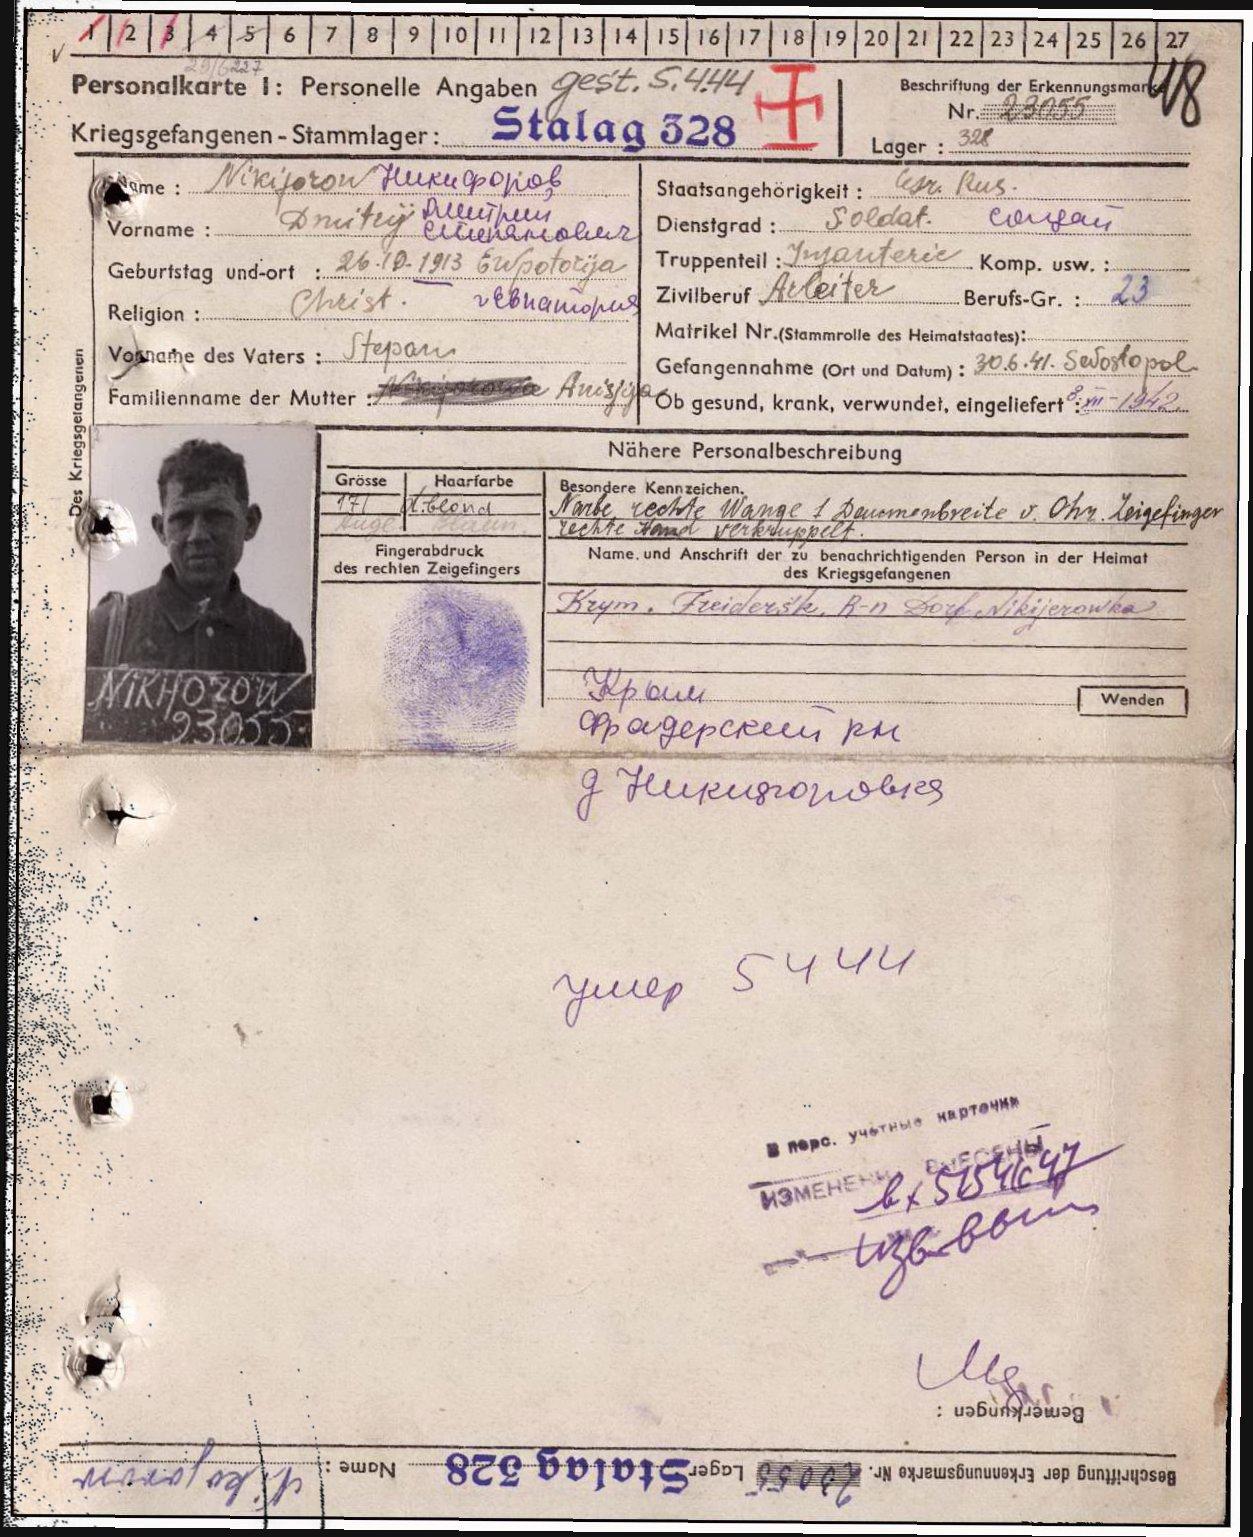 1 2 3 4 5 6 7 8 9 10 11 12 13 14 15 16 17 18 19 20 21 22 23 24 25 26 27
Personalkarte I: Personelle Angaben gest. 5.4.44
Beschriftung der Erkennungsmarke
48
Nr. 23055
Kriegsgefangenen-Stammlager: Stalag 328
Lager: 328
Name: Nikiforow Никифоров
Vorname: Dmitrij Дмитрий
Степанович
Geburtstag und-ort: 26.10.1913 Ewpatorija
Religion: Christ. г Евпатория
Vorname des Vaters: Stepan
Familienname der Mutter: Nikiforowa Anissija
Staatsangehörigkeit: Rus.
Dienstgrad: Soldat. солдат
Truppenteil: Infanterie Komp. usw.:
Zivilberuf Arbeiter Berufs-Gr.: 23
Matrikel Nr. (Stammrolle des Heimatstaates):
Gefangennahme (Ort und Datum): 30.6.41. Sewostopol
Ob gesund, krank, verwundet, eingeliefert: 8.VII-1942.
Des Kriegsgefangenen
NiKHOROW
23055
Nähere Personalbeschreibung
Grösse Haarfarbe
171 d.blond
Augen braun
Besondere Kennzeichen.
Narbe rechte Wange 1 Daumenbreite v. Ohr. Zeigefinger
rechte Hand verkruppelt.
Fingerabdruck
des rechten Zeigefingers
Name und Anschrift der zu benachrichtigenden Person in der Heimat
des Kriegsgefangenen
Krym. Freideršk. R-n Dorf Nikijerowka
Крым
Wenden
Фрадерский рн
д Никифоровка
умер 5 4 44
В перс. учетные карточки
ИЗМЕНЕНИЯ ВНЕСЕНЫ
вх 5154с 47
Bemerkungen:
Beschriftung der Erkennungsmarke Nr. 23055 Lager Stalag 328 Name: Nikoforow